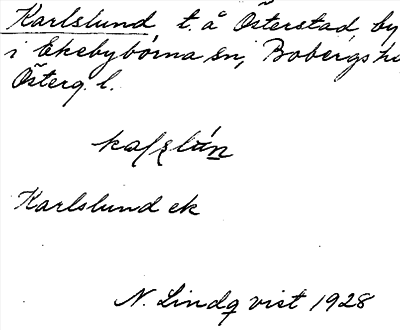 Karlslund t. å Österstad, by
i Ekebyborna sn, Bobergs h
Österg. l.
Karlslund ek
N. Lindqvist 1928